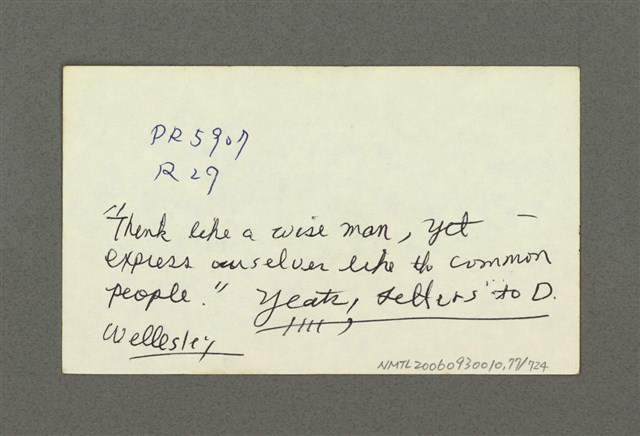 PR5907
R29
"Think like a wise man, yet —
express ourselves like the common
people." Yeats, Letters to D.
Wellesley
NMTL20060930010.77/724